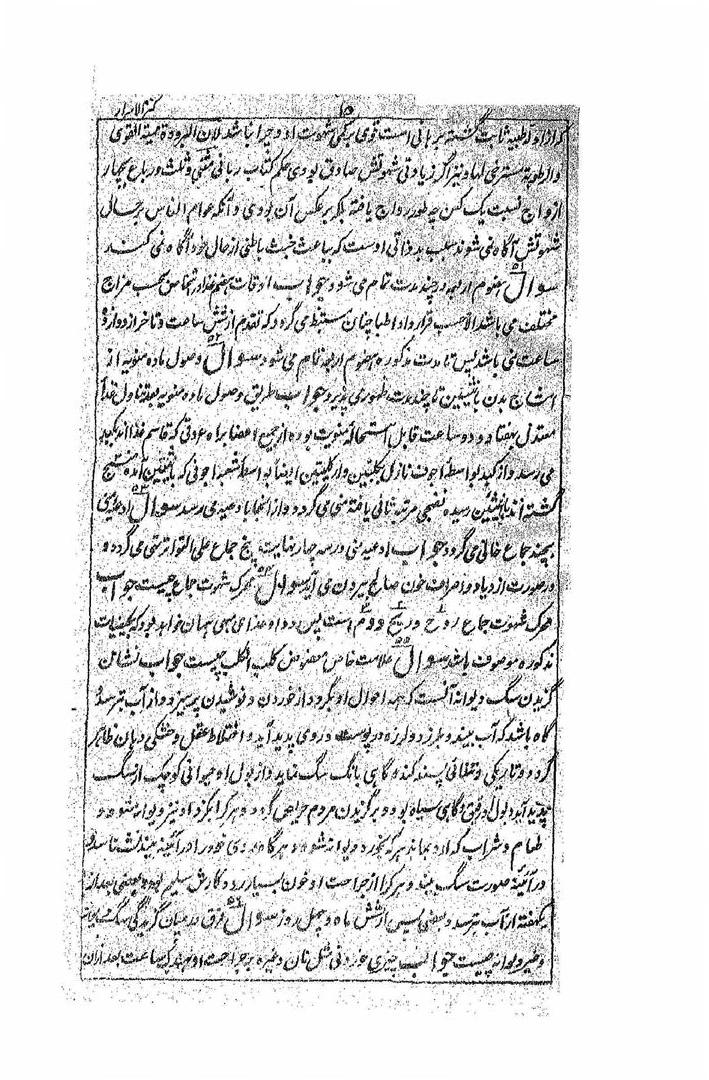 ۱۵ کنز الاسرار
که از ادله طبیه ثابت گشته برهانی است قوی بر کمی شهوت او و چرا نباشد لان البرودة ممیتة القوی
والرطوبة مسترخی لها و نیز اگر زیادتی شهوتش صادق بودی حکم کتاب ربانی مثنی و ثلث و رباع بچار
ازواج نسبت یک کس چه طور رواج یافته بلکه برعکس آن بودی و آنکه عوام الناس بر حال
شهوتش آگاه نمی شوند سبب بدذاتی اوست که بباعث خبث باطنی از حال خود آگاه نمی کند
سوال ۵۱ هضوم اربعه در چند مدت تمام می شود جواب اوقات هضم غذا در اشخاص بحسب مزاج
مختلف می باشد الا حسب قرارداد اطبا چنان مستنبط می گردد که تقدم از شش ساعت و تاخر از دوازده
ساعت نمی باشد پس تا مدت مذکوره هضوم اربعه تمام می شود سوال ۵۲ وصول ماده منویه از
امشاج بدن بانثیین تا چند مدت ظهور می پذیرد جواب طریق وصول ماده منویه بعد تناول غذا
معتدل بهفتاد و دو ساعت قابل استحاله منویت بوده از جمیع اعضا براه عروقی که قاسم غذا اند بکبد
می رسد و از کبد بواسطه اجوف نازل بکلیتین و از کلیتین ایضا بواسطه شعبه اجوفی که بانثیین آمده منتسج
گشته اند بانثیین رسیده نضجی مرتبه ثانی یافته منی می گردد و از انجا باوعیه می رسد سوال ۵۳ اوعیه منی
بچند جماع خالی می گردد جواب اوعیه منی در سه چهار نهایت پنج جماع علی التواتر تهی می گردد و
در صورت ازدیاد و اصراف خون صالح بیرون می آید سوال ۵۴ محرک شهوت جماع چیست جواب
محرک شهوت جماع روح و ریح و دم است پس دوا و غذای مبهی همان خواهد بود که بکیفیات
مذکوره موصوف باشد سوال ۵۵ علامت خاص معضوض کلب الکلب چیست جواب نشان
گزیدن سگ دیوانه آنست که همه احوال او بگردد از خوردن و نوشیدن پرهیزد و از آب بترسد و
گاه باشد که آب بیند و بلرزد و لرزه در پوست روی پدید آید و اختلاط عقل و خشکی دهان ظاهر
گردد و تاریکی و تنهائی پسند کند و گاهی بانگ سگ نماید و از بول او حیوانی کوچک از سگ
پدید آید و بول او رقیق و گاهی سیاه بود و بر گزیدن مردم حریص گردد و هر کرا بگزد او نیز دیوانه شود و
طعام و شراب که از و بماند هر که بخورد دیوانه شود و هر گاه روی خود را در آئینه بیند نشناسد و
در آئینه صورت سگ بیند و هر کرا از جراحت او خون بسیار رود کارش سلیم بود و بعضی بعد از
یکهفته از آب بترسد و بعضی پس از شش ماه و چهل روز سوال ۵۶ فرق در میان گزیدگی سگ دیوانه
و غیر دیوانه چیست جواب چیزی خوردنی مثل نان و غیره بر جراحت او بنهند یک ساعت بعد ازان